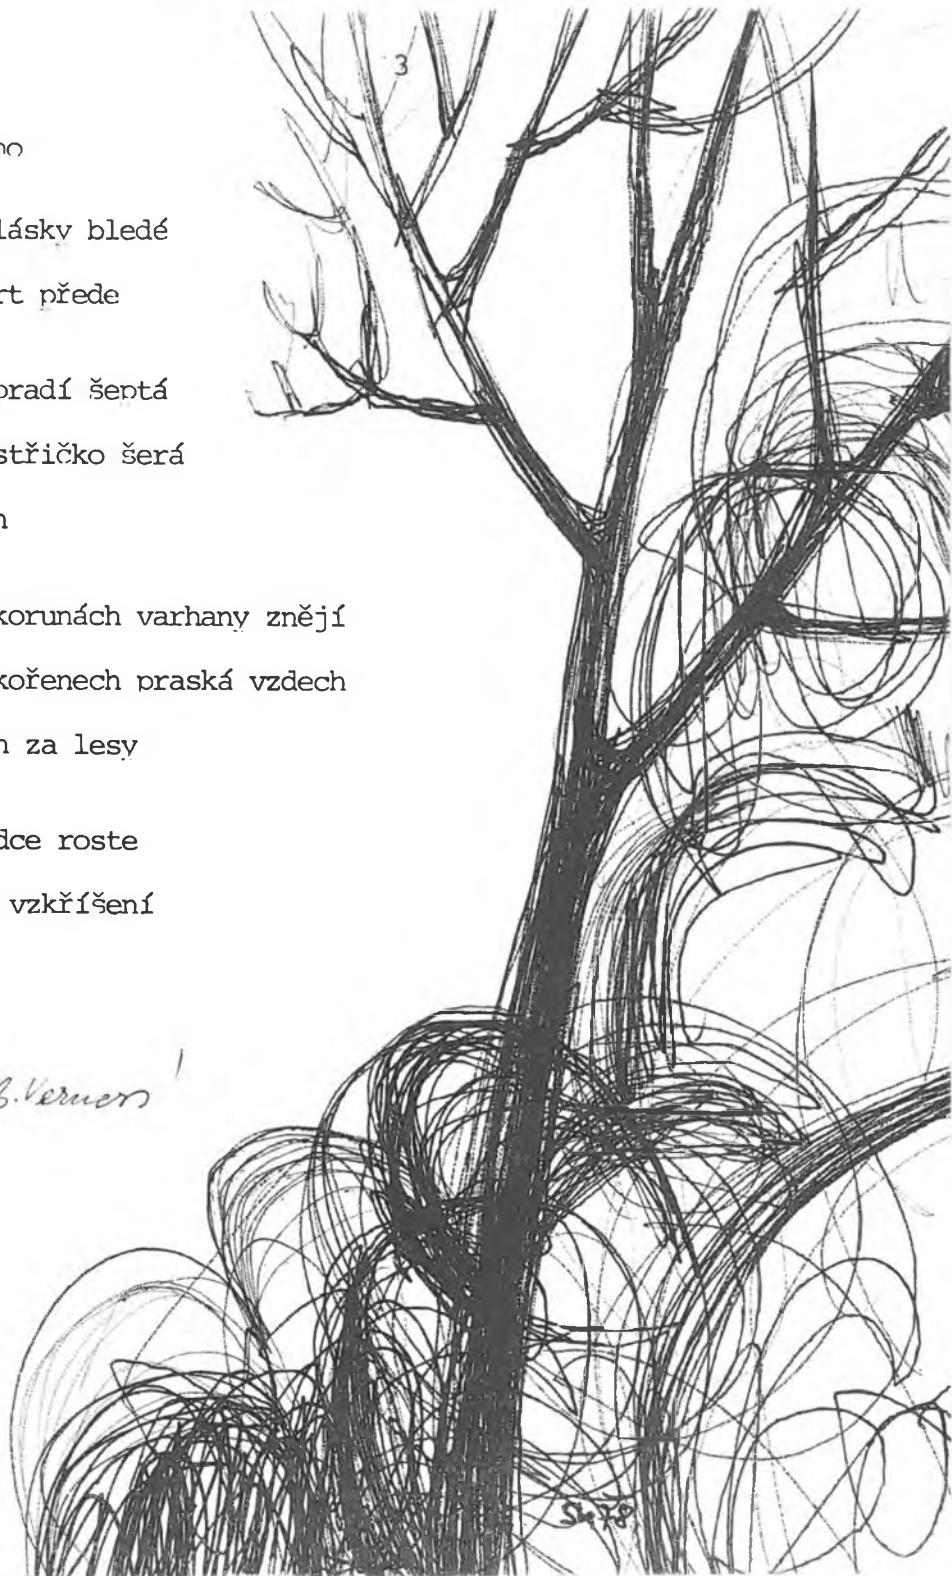 3
no
lásky bledé
rt přede
oradí šeptá
střičko šerá
n
korunách varhany znějí
kořenech praská vzdech
n za lesy
dce roste
vzkříšení
78